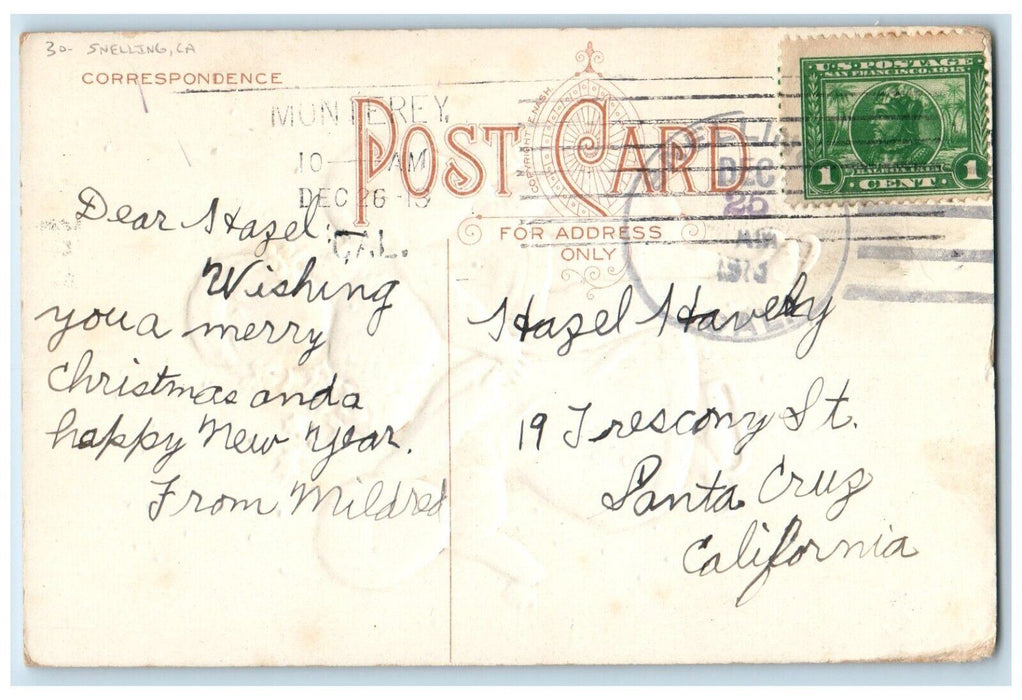 30- SNELLING, CA
CORRESPONDENCE
POST CARD
FOR ADDRESS
ONLY
MONTEREY
10- AM
DEC 26
CAL.
DEC
25
AM
1913
U.S. POSTAGE
SAN FRANCISCO, 1915
BALBOA
1 CENT 1
Dear Hazel,—
Wishing
you a merry
Christmas and a
happy New Year.
From Mildred
Hazel Havely
19 Trescony St.
Santa Cruz
California